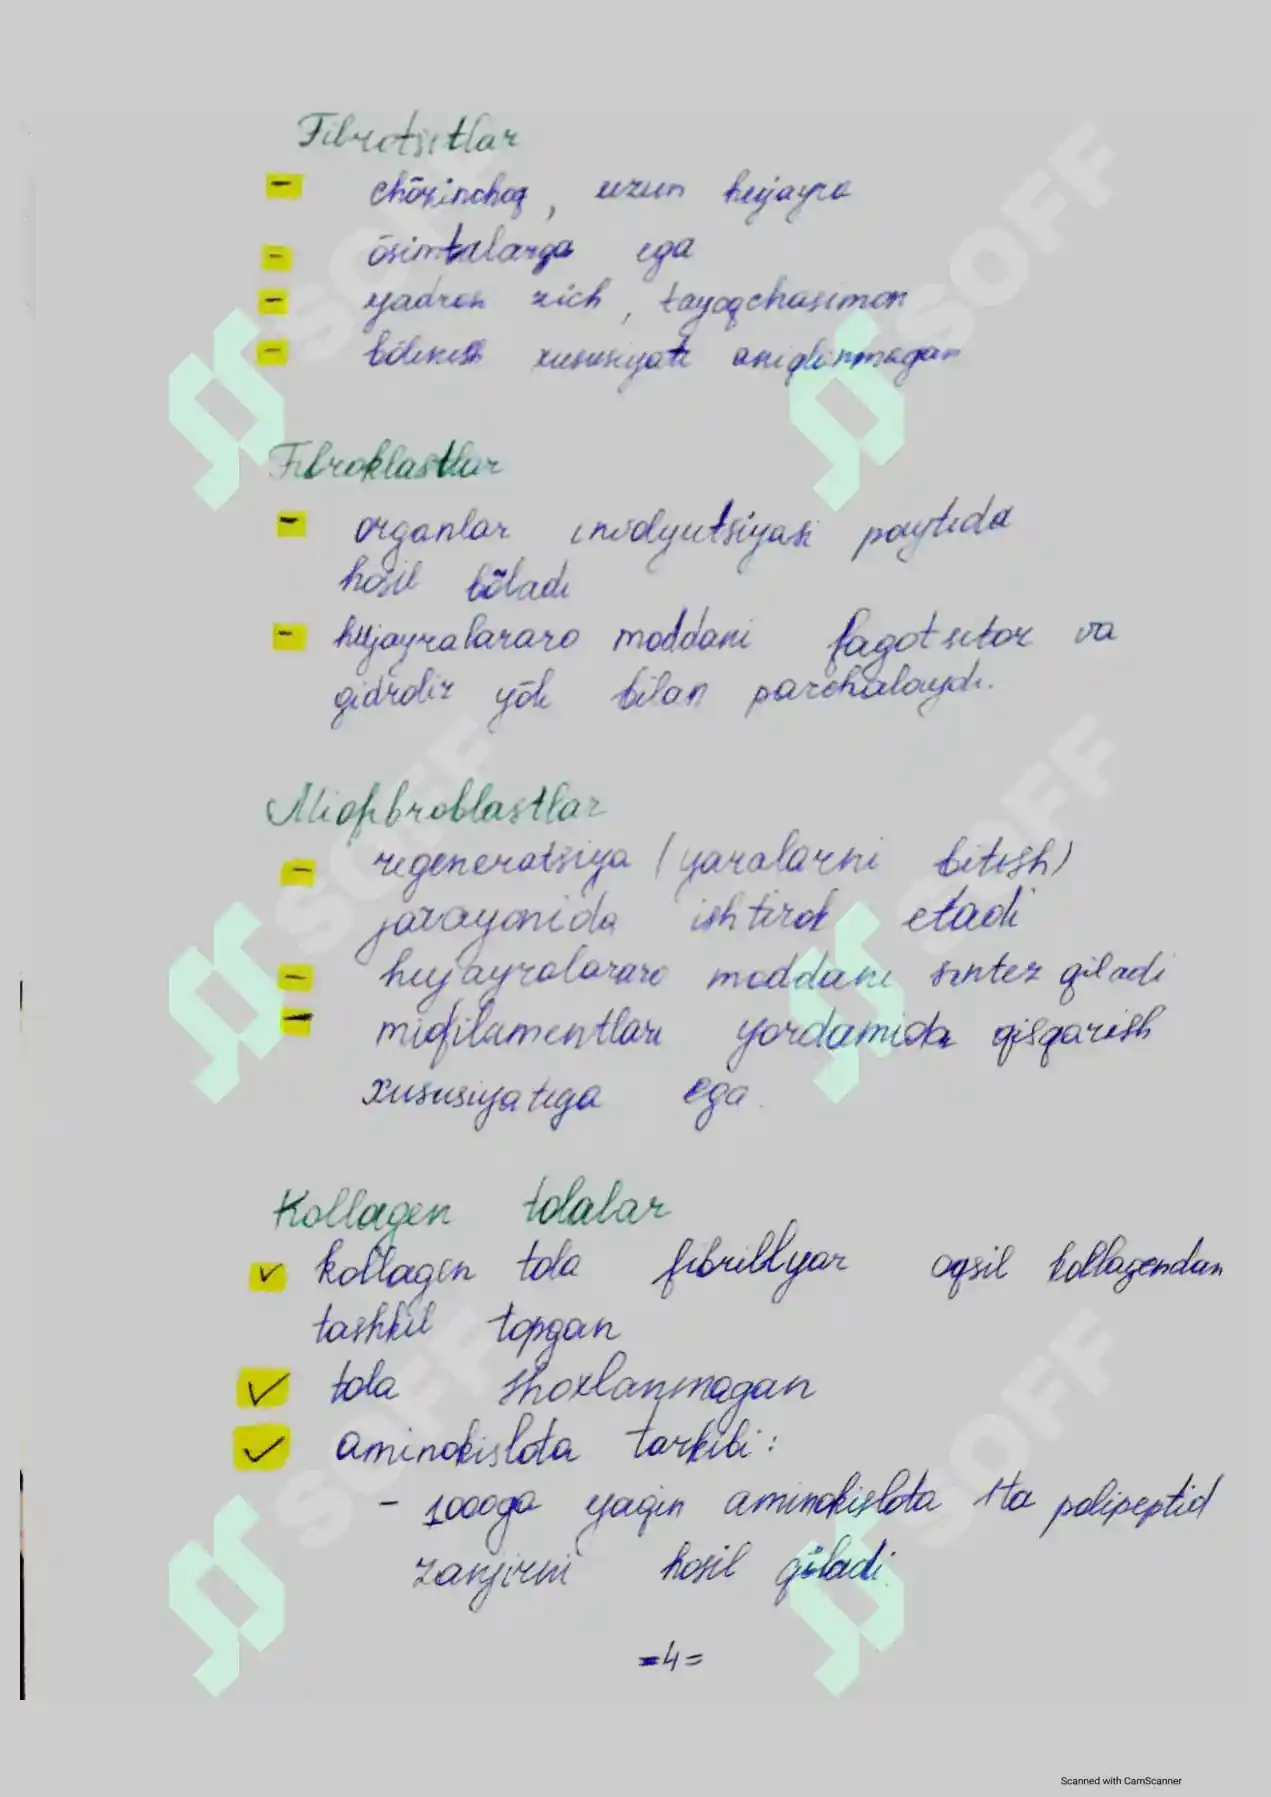 Fibrotsitlar
- chōzinchoq, uzun hujayra
- ōsimtalarga ega
- yadrosi zich, tayoqchasimon
- bōlinish xususiyati aniqlanmagan
Fibroklastlar
- organlar involyutsiyasi paytida
hosil bōladi
- hujayralararo moddani fagotsitoz va
gidroliz yōli bilan parchalaydi.
Miofibroblastlar
- regeneratsiya (yaralarni bitish)
jarayonida ishtirok etadi
- hujayralararo moddani sintez qiladi
- miofilamentlari yordamida qisqarish
xususiyatiga ega.
Kollagen tolalar
✓ kollagen tola fibrillyar oqsil kollagendan
tashkil topgan
✓ tola shoxlanmagan
✓ aminokislota tarkibi:
- 1000ga yaqin aminokislota 1ta polipeptid
zanjirni hosil qiladi.
=4=
SOFF
SOFF
SOFF
SOFF
SOFF
SOFF
Scanned with CamScanner